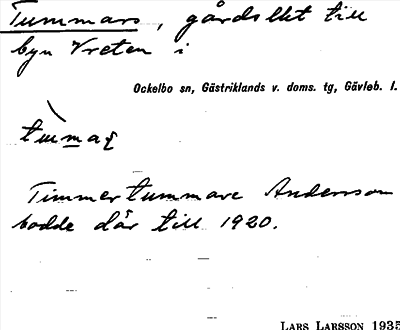 Tummars, gårdslht till
byn Vreten i
Ockelbo sn, Gästriklands v. doms. tg, Gävleb. l.
Timmertummare Andersson
bodde där till 1920.
LARS LARSSON 1935